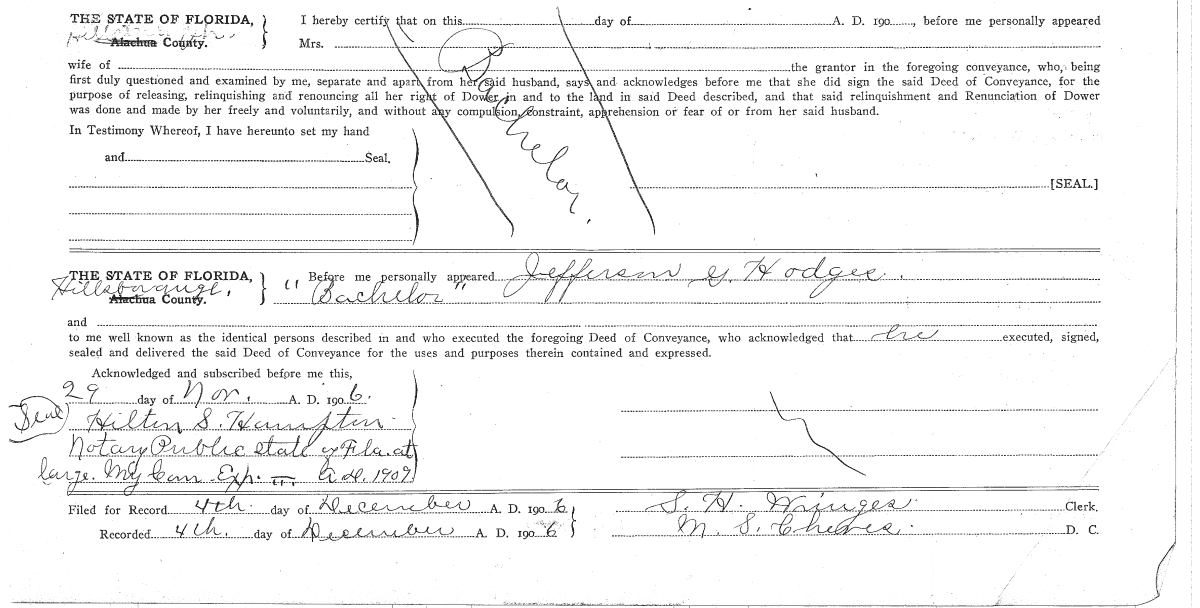 THE STATE OF FLORIDA, I hereby certify that on this day of A. D. 190 , before me personally appeared
Alachua County. Mrs.
wife of the grantor in the foregoing conveyance, who, being
first duly questioned and examined by me, separate and apart from her said husband, says and acknowledges before me that she did sign the said Deed of Conveyance, for the
purpose of releasing, relinquishing and renouncing all her right of Dower in and to the land in said Deed described, and that said relinquishment and Renunciation of Dower
was done and made by her freely and voluntarily, and without any compulsion, constraint, apprehension or fear of or from her said husband.
Bachelor.
In Testimony Whereof, I have hereunto set my hand
and Seal.
[SEAL.]
THE STATE OF FLORIDA, Before me personally appeared Jefferson G. Hodges.
Hillsborouge. Alachua County. "Bachelor"
and
to me well known as the identical persons described in and who executed the foregoing Deed of Conveyance, who acknowledged that he executed, signed,
sealed and delivered the said Deed of Conveyance for the uses and purposes therein contained and expressed.
Acknowledged and subscribed before me this,
29 day of Nov. A. D. 190 6.
Seal Hilton S. Hampton
Notary Public State of Fla. at
large. My Com. Exp. A.d. 1909
Filed for Record 4th. day of December A. D. 190 6 S. H. Wienges Clerk.
Recorded 4th. day of December A. D. 190 6 M. S. Cheves. D. C.